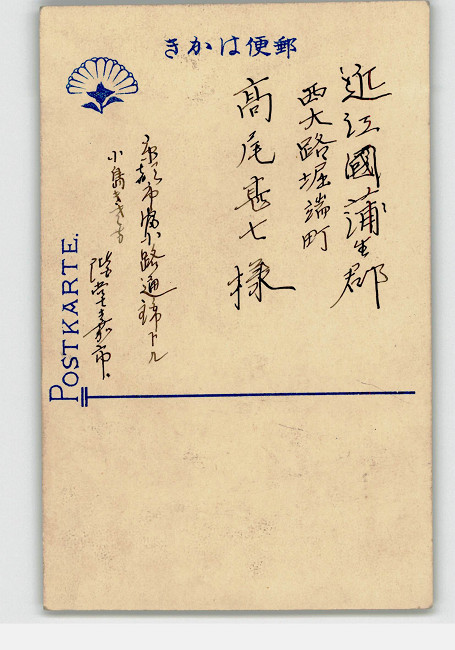 きかは便郵
近江國蒲生郡
西大路堀端町
高尾甚七様
京都市 路通錦下ル
小島 方
階堂嘉市
POSTKARTE.